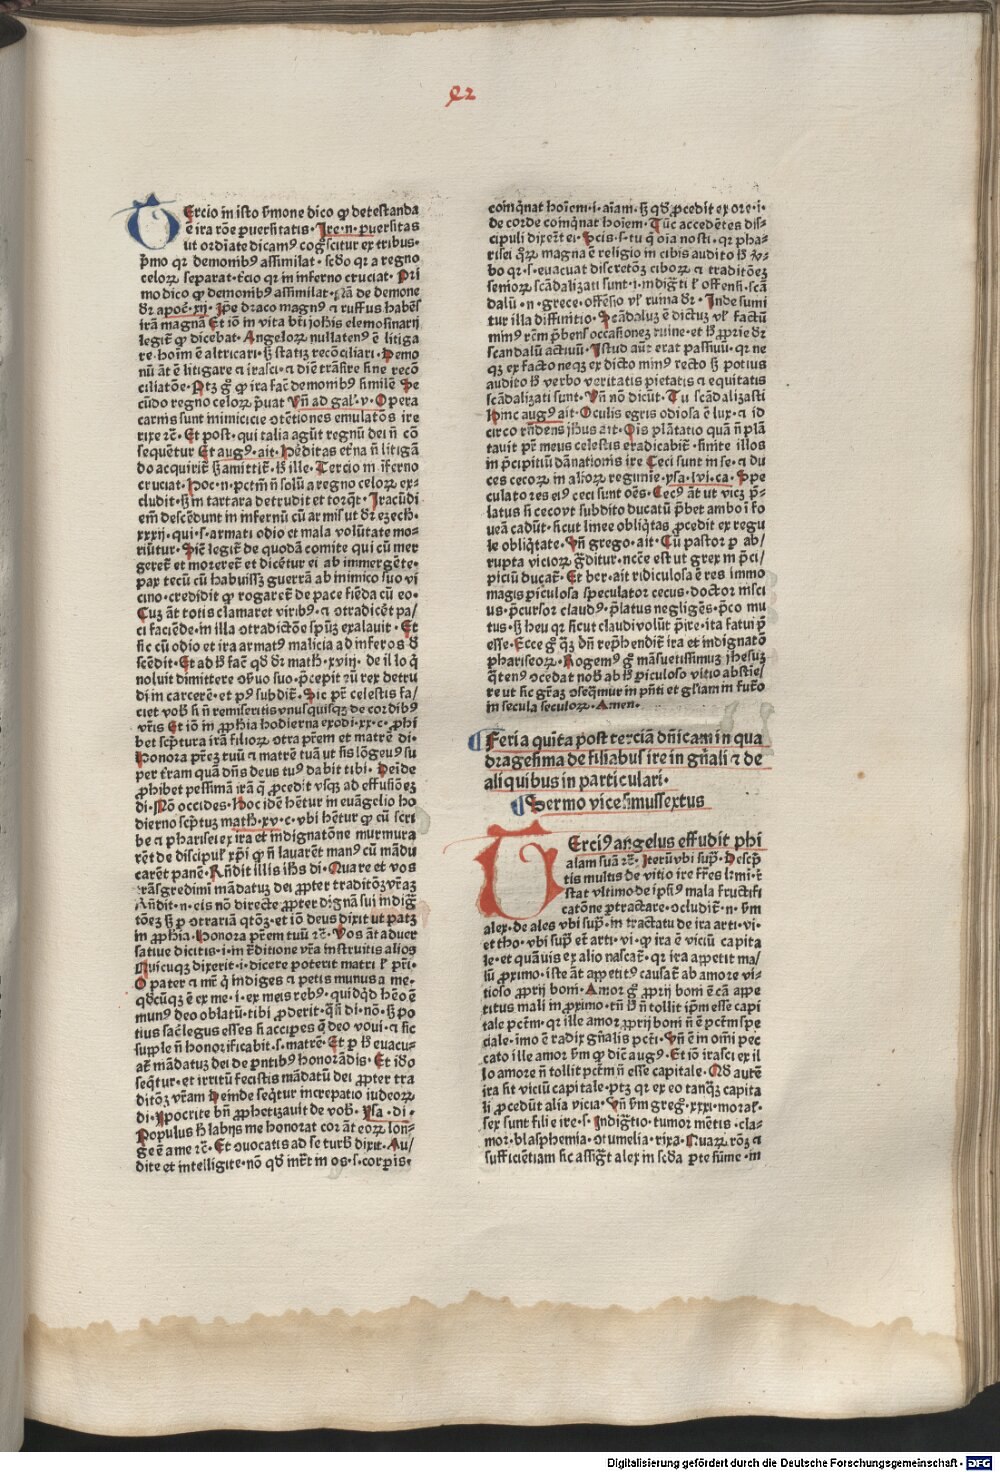 e2
Tercio in isto ẜmone dico ꝙ detestanda
ē ira rōe ꝑuersitatis. Ire .n. ꝑuersitas
ut ordīate dicamꝰ cogscitur ex tribus.
p̄mo qr demonibꝰ assimilat. scd̄o qr a regno
celoꝝ separat. t̄cio qr in inferno cruciat. Pri
mo dico ꝙ demonibꝰ assimilat. Nā de demone
dr apoc̄. xij. Ipe draco magnꝰ ⁊ ruffus habēs
irā magnā Et iō in vita bt̄i johis elemosinarij
legit̄ ꝙ dicebat. Angeloꝝ nullatenꝰ ē litiga
re. hoīm ē altricari. sꝫ statiz recōciliari. Demo
nū āt ē litigare ⁊ irasci. ⁊ diē trāsire sine recō
ciliatōe. Ptꝫ gͦ ꝙ ira fac̄ demonibꝰ similē Se
cūdo regno celoꝝ p̄uat Vn̄ ad gal. v. Opera
carnis sunt inimicicie ↄtētiones emulatōes ire
rixe rc̄. Et post. qui talia agūt regnū dei n̄ cō
sequētur Et augꝰ. ait. Hēditas et̄na n̄ litigā
do acquirit̄ sꝫ amittit̄. h̄ ille. Tercio in īferno
cruciat. Hoc .n. pctm̄ n̄ solū a regno celoꝝ ex-
cludit. sꝫ in tartara detrudit et torq̄t. Iracūdi
em̄ descēdunt in infernū cū armis ut dr ezech.
xxxij. qui .s. armati odio et mala volūtate mo-
riūtur. Sic̄ legit̄ de quodā comite qui cū mer
geret̄ et moreret̄ et dicētur ei ab immergēte.
pax tecū cū habuissꝫ guerrā ab inimico suo vi
cino. credidit ꝙ rogaret̄ de pace fiēda cū eo.
Cuꝫ āt totis clamaret viribꝰ. ⁊ ↄtradicēt pa/
ci faciēde. in illa ↄtradictōe sp̄uꝫ exalauit. Et
sic cū odio et ira armatꝰ malicia ad inferos d̄
scēdit. Et ad h̄ fac̄ qd̄ dr math. xviij. de il lo q̄
noluit dimittere ↄẜuo suo. p̄cepit .n. rex detru
di in carcerē. et pꝰ subdit̄. Sic pr̄ celestis fa/
ciet vob̄ si n̄ remiseritis vnusquisqꝫ de cordibꝰ
vr̄is Et iō in ꝓphia hodierna exodi .xx. c. ꝓhi
bet scp̄tura irā filioꝝ ↄtra prēm et matrē di.
Honora prēꝫ tuū ⁊ matrē tuā ut sis lōgeuꝰ su
per t̄ram quā dn̄s deus tuꝰ dabit tibi. Deīde
ꝓhibet pessimā irā q̄ ꝓcedit vsqꝫ ad effusiōeꝫ
di. Nō occides. Hoc idē hētur in euāgelio ho
dierno scp̄tuꝫ math. xv. c. vbi hētur ꝙ cū scri
be ⁊ pharisei ex ira et indignatōne murmura
rēt de discipuľ xp̄i ꝙ n̄ lauarēt manꝰ cū mādu
carēt panē. Rn̄dit illis ih̄s di. Quare et vos
trāsgredimī mādatuꝫ dei ꝓpter traditōꝫ vr̄aꝫ
Rn̄dit .n. eis nō directe ꝓpter dignā sui indig̅
tōeꝫ sꝫ p ↄtrariā q̄tōꝫ. et iō deus dixit ut patꝫ
in ꝓphia. Honora prēm tuū rc̄. Vos āt aduer
satiue dicitis .i. in t̄ditione vr̄a instruitis alios
Quicuqꝫ dixerit .i. dicere poterit matri ľ pr̄i.
O pater ⁊ mr̄ q̄ indiges ⁊ petis munus a me.
qd̄cūqꝫ ē ex me .i. ex meis rebꝰ. quidq̄d hēo ē
munꝰ deo oblatū. tibi ꝓderit. q̄si di. nō. sꝫ po
tius sac̄legus esses si accipes q̄ deo voui. ⁊ sic
supple n̄ honorificabit .s. matrē. Et p h̄ euacu-
at̄ mādatuꝫ dei de pn̄tibꝰ honorādis. Et ido
seq̄tur. et irritū fecistis mādatū dei ꝓpter tra
ditōꝫ vr̄am Deinde seq̄tur increpatio iudeoꝝ
di. ypocrite bn̄ ꝓphetizauit de vob̄. ysa. di.
Populus h̄ labijs me honorat cor āt eoꝝ lon̄-
ge ē ame rc̄. Et ↄuocatis ad se turb̄ dixit. Au/
dite et intelligite. nō qd̄ int̄t in os .s. corꝑis.
comq̄nat hoīem .i. aīam. sꝫ qd̄ ꝓcedit ex ore .i.
de corde comq̄nat hoīem. Tūc accedētes dis-
cipuli dixer̄t ei. Scis .s. tu q̄ oīa nosti. qr pha-
risei q̄ꝝ magna ē religio in cibis audito h̄ ꝟ-
bo qr .s. euacuat discretōꝫ ciboꝝ ⁊ traditōeꝫ
senioꝝ scādalizati sunt .i. indig̅ti ľ offensi. scā
dalū .n. grece. offensio vľ ruina dr. Inde sumi
tur illa diffinitio. Scādaluꝫ ē dictuꝫ vľ factū
minꝰ rc̄m p̄bens occasioneꝫ ruine. et h̄ ꝓprie dr
scandalū actiuū. Istud aūt erat passiuū. qr ne
qꝫ ex facto neqꝫ ex dicto minꝰ recto sꝫ potius
audito h̄ verbo veritatis pietatis ⁊ equitatis
scādalizati sunt. Vn̄ nō dicūt. Tu scādalizasti
Hinc augꝰ ait. Oculis egris odiosa ē lux. ⁊ id
circo rn̄dens jhūs ait. Oīs plātatio quā n̄ plā
tauit pr̄ meus celestis eradicabit̄. sinite illos
in p̄cipitiū dānationis ire Ceci sunt in se. ⁊ du
ces cecoꝝ in alioꝝ regimīe. ysa. lvi. ca. Spe
culatores eiꝰ ceci sunt oēs. Cecꝰ āt ut vicꝫ p̄-
latus si cecovt subdito ducatū p̄bet ambo ī fo
ueā cadūt. sicut linee obliq̄tas ꝓcedit ex regu
le obliq̄tate. Vn̄ grego. ait. Cū pastor p ab/
rupta vicioꝝ g̅ditur. nc̄ce est ut grex in p̄ci/
piciū ducat̄. Et ber. ait ridiculosa ē res immo
magis piculosa speculator cecus. doctor insci
us. p̄cursor claudꝰ. p̄latus negligēs. p̄co mu
tus. sꝫ heu qr sicut claudi volūt p̄ire. ita fatui p̄
esse. Ecce gͦ qꝫ dn̄ rep̄hendit̄ ira et indignatō
phariseoꝝ. Rogemꝰ gͦ māsuetissimuꝫ jhesuꝫ
q̄tenꝰ ↄcedat nob̄ ab h̄ piculoso vitio abstīe/
re ut sic gr̄aꝫ ↄseq̄mur in pn̄ti et gl̄iam in fut̄o
in secula seculoꝝ. Amen.
Feria quīta post terciā dn̄icam in qua
dragesima de filiabus ire in gn̄ali ⁊ de
aliquibus in particulari.
Sermo vicesimussextus
Terciꝰ angelus effudit phi
alam suā rc̄. Iterū vbi sup̄. Descp̄
tis multis de vitio ire fr̄es k̄mi. r̄
stat vltimo de ipsiꝰ mala fructifi
catōne ꝑtractare. ↄcludit̄ .n. ẜm
alex. de ales vbi sup̄. in tractatu de ira arti. vi.
et tho. vbi sup̄ et̄ arti. vi. ꝙ ira ē viciū capita
le. et quāuis ex alio nascat̄. qr ira appetit ma/
lū ꝓximo. iste āt appetitꝰ causat̄ ab amore vi-
tioso ꝓprij boni. Amor gͦ ꝓprij boni ē cā appe
titus mali in ꝓximo. tn̄ h̄ n̄ tollit ip̄m esse capi
tale pctm̄. qr ille amor ꝓprij boni n̄ ē pctm̄ spe
ciale. īmo ē radix gn̄alis pcti. Vn̄ ē in omī pec
cato ille amor ẜm ꝙ dic̄ augꝰ. Et iō irasci ex il
lo amore n̄ tollit pctm̄ n̄ esse capitale. Qd̄ autē
ira sit viciū capitale. ptꝫ qr ex eo tanq̄ꝫ capita
li ꝓcedūt alia vicia. Vn̄ ẜm greḡ. xxxi. moral.
sex sunt filie ire .s. Indig̅tio. tumor mētis. cla-
mor. blasphemia. ↄtumelia. rixa. Quaꝝ rōꝫ ⁊
sufficiētiam sic assig̅t alex in scd̄a ꝑte sūme. in
Digitalisierung gefördert durch die Deutsche Forschungsgemeinschaft - DFG